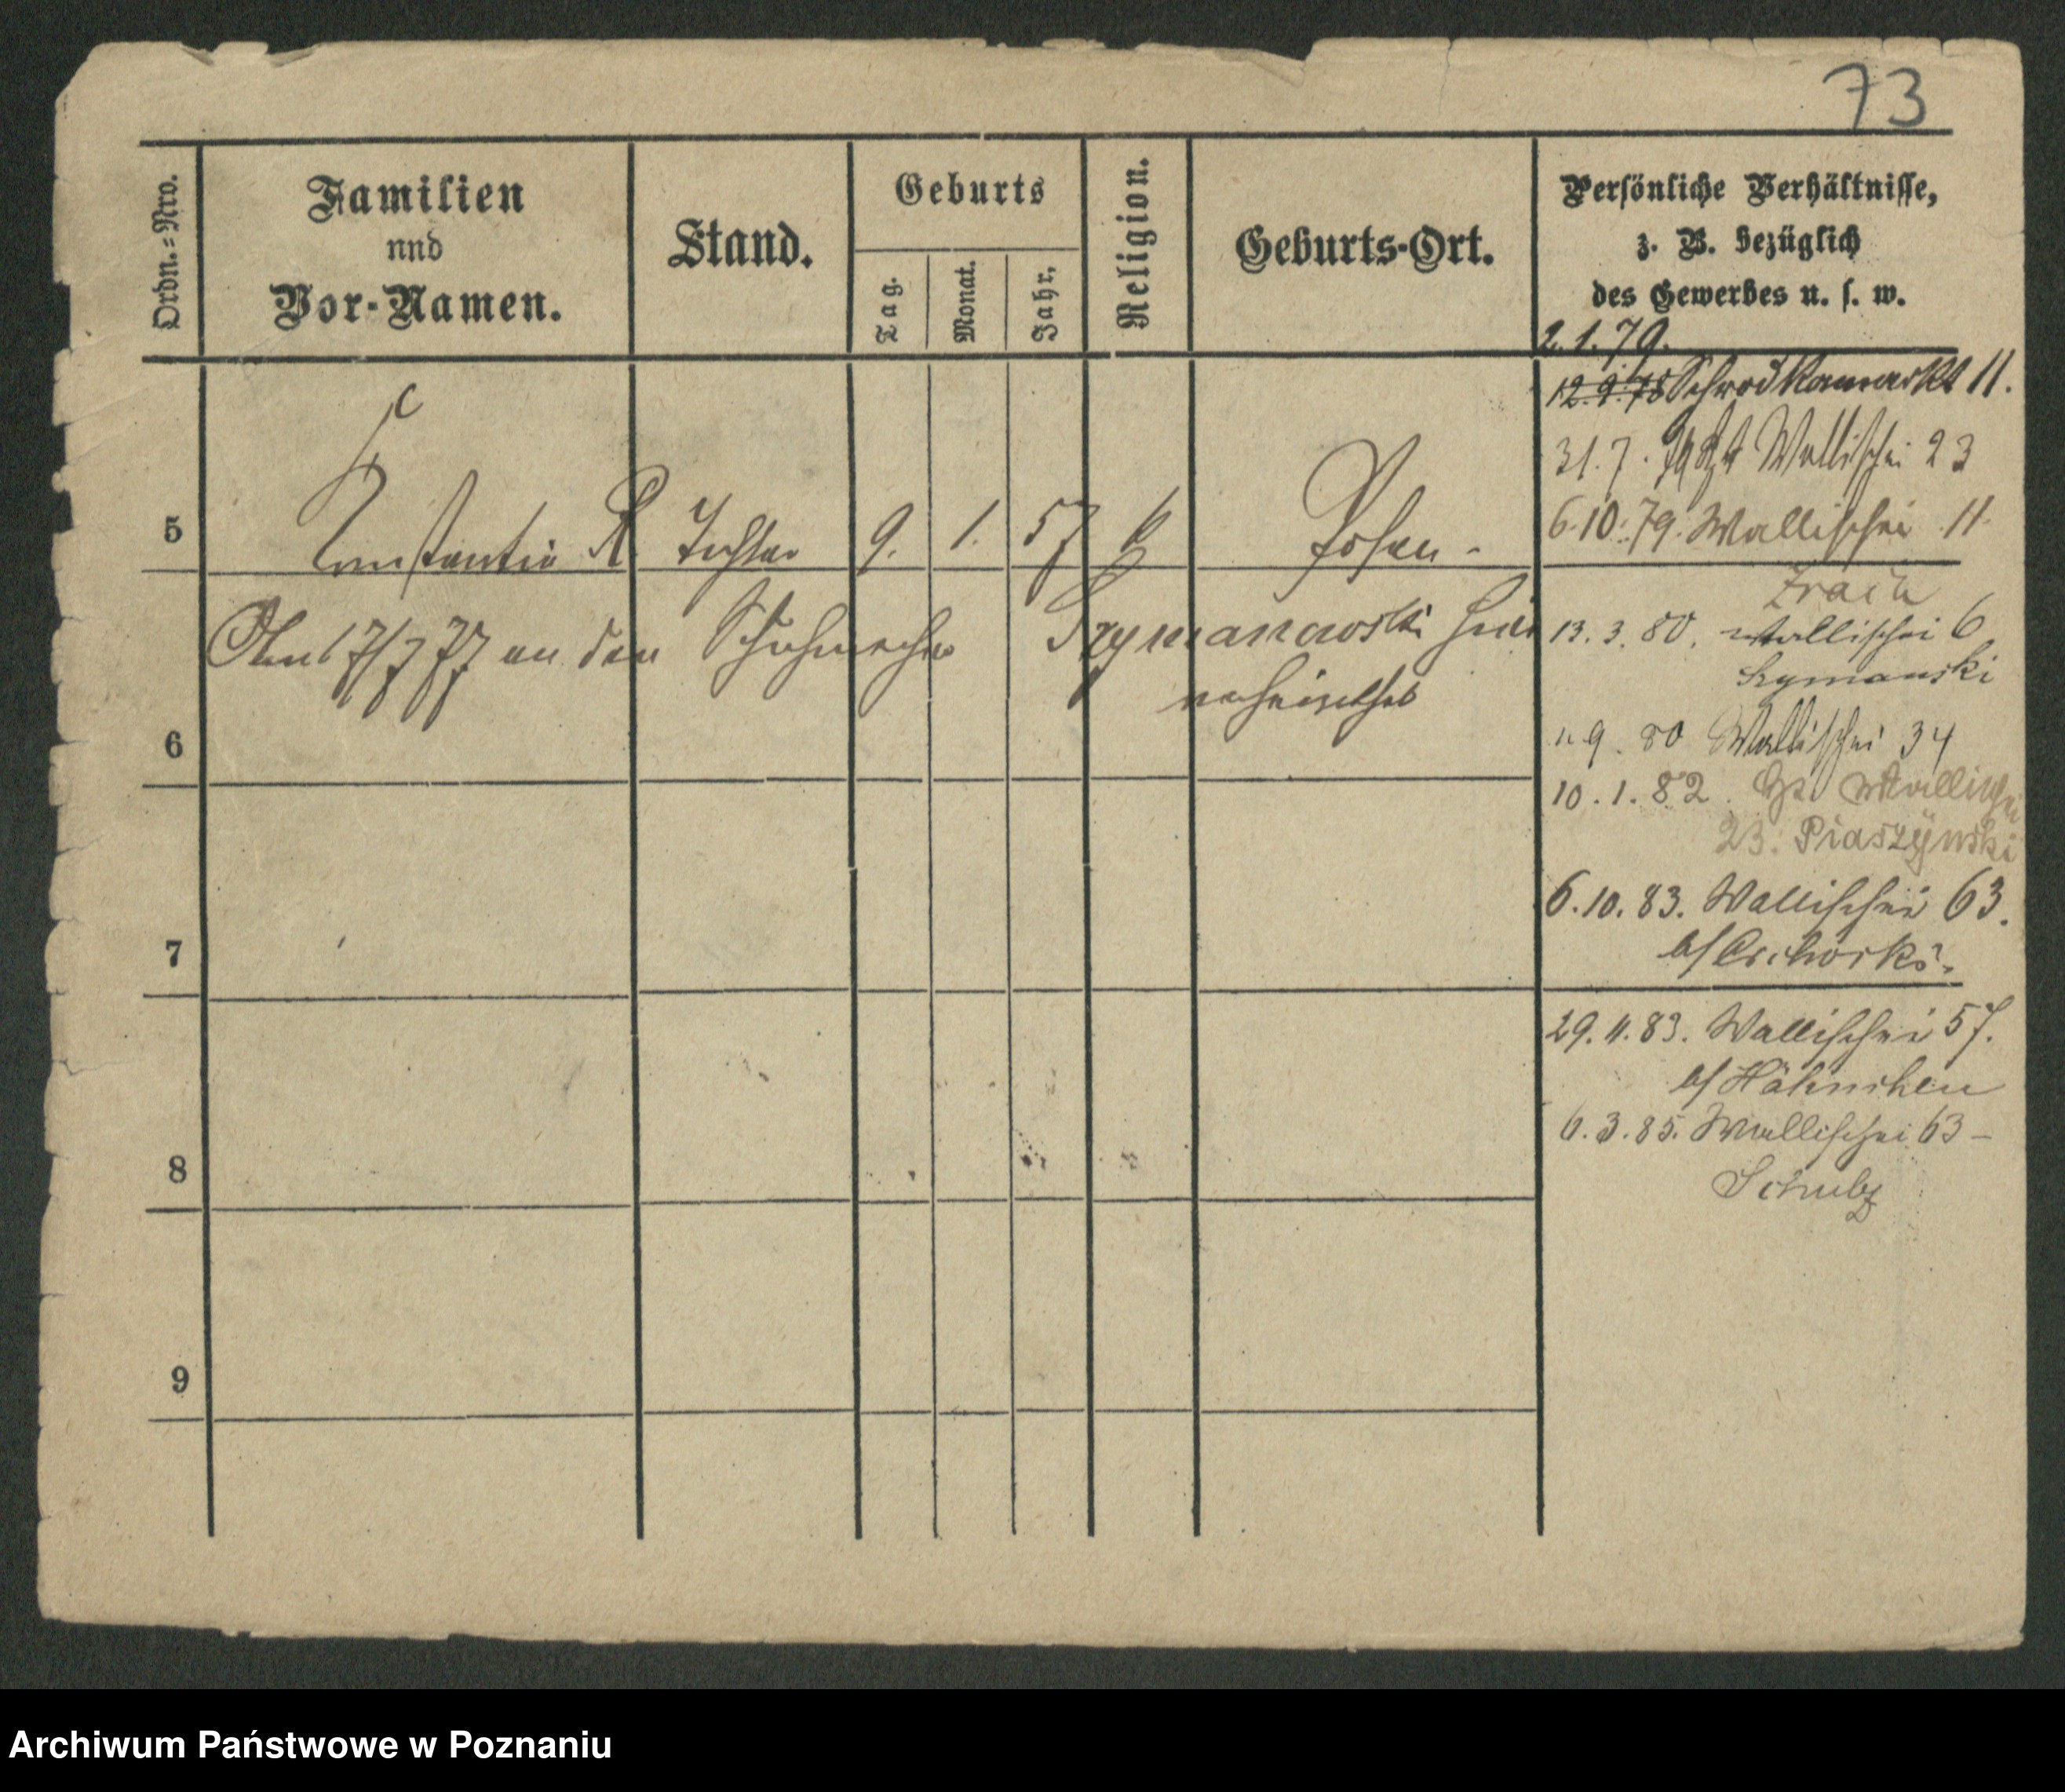 73
Ordn.=Nro.
Familien
und
Vor-Namen.
Stand.
Geburts
Tag.
Monat.
Jahr.
Religion.
Geburts-Ort.
Persönliche Verhältnisse,
z. B. bezüglich
des Gewerbes u. s. w.
2.1.79.
12.9.78 Schrodkamarkt 11.
31.7. Wallischei 23
6.10.79. Wallischei 11.
5 Constantia R. Tochter 9. 1. 57 k Posen.
Szymanowski hier
verheirathet
13.3.80. Wallischei 6
Szymanski
6
9.80 Wallischei 34
10.1.82. Wallischei
23. Piaszynski
6.10.83. Wallischei 63.
7
29.11.83. Wallischei 57.
b/ Hähnchen
6.3.85. Wallischei 63 –
8
Schulz
9
Archiwum Państwowe w Poznaniu